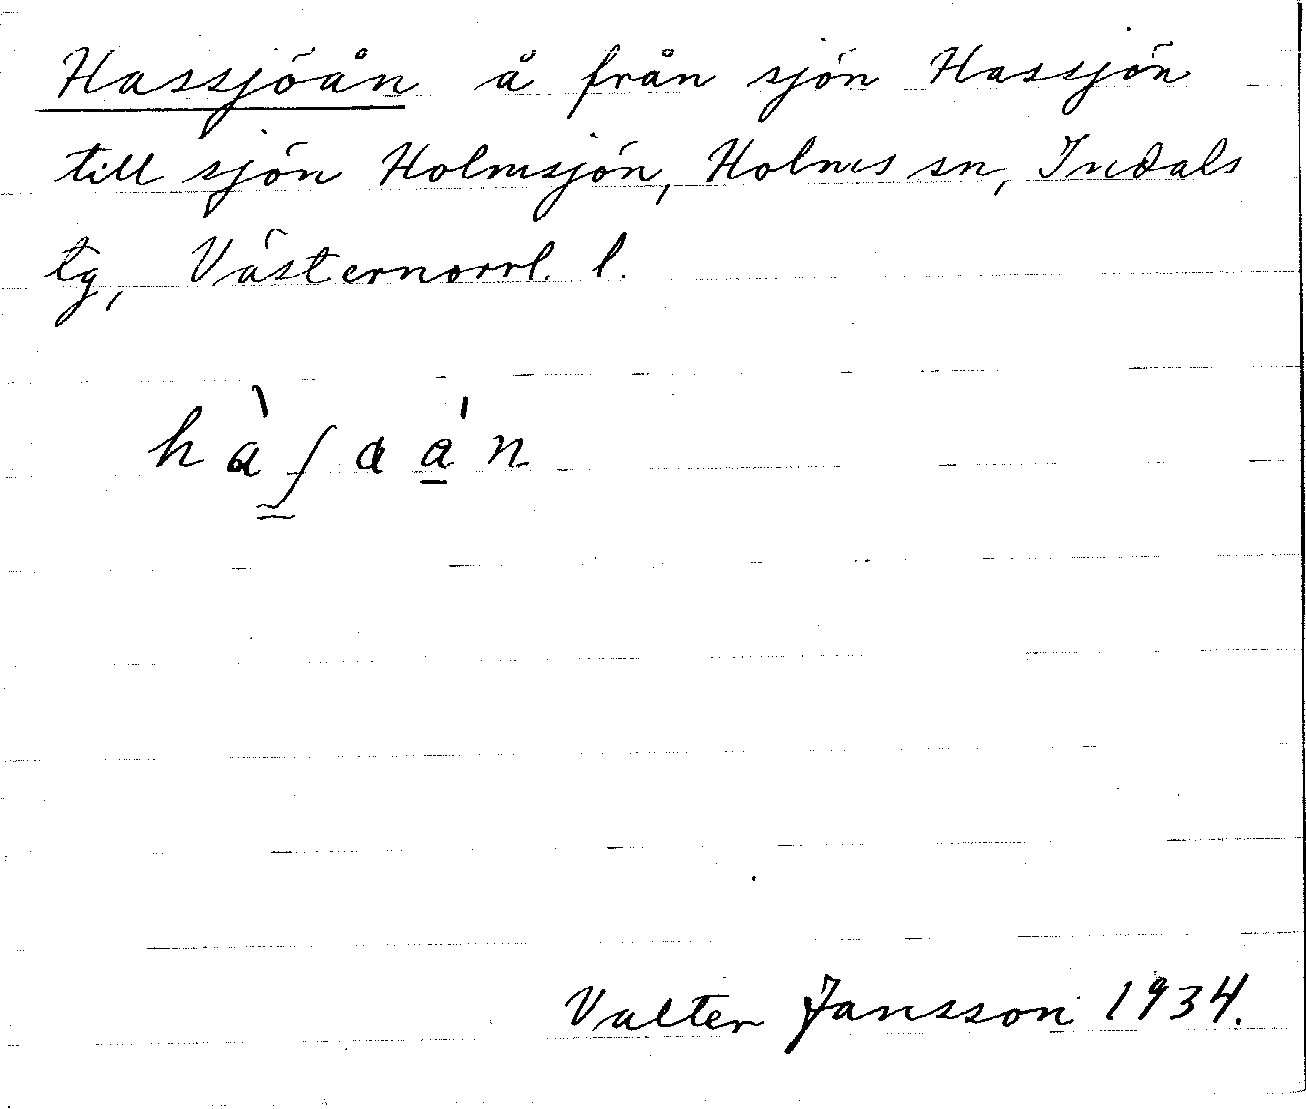 Hassjöån å från sjön Hassjön
till sjön Holmsjön, Holms sn, Indals
tg, Västernorrl. l.
hàʃaa̠ˈn
Valter Jansson 1934.